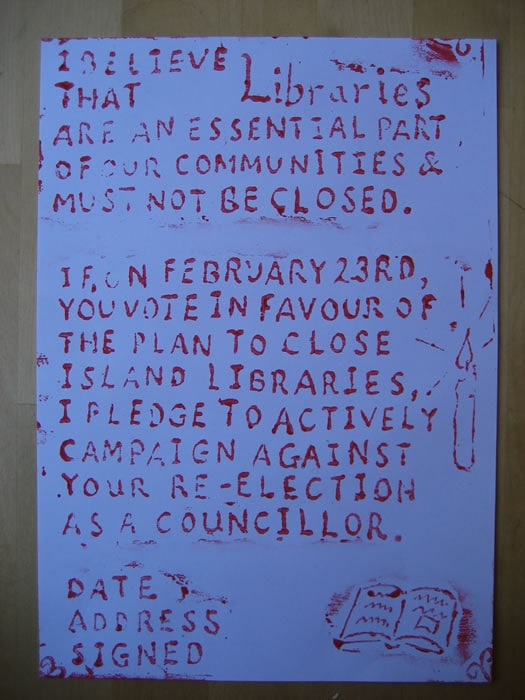 I BELIEVE
THAT Libraries
ARE AN ESSENTIAL PART
OF OUR COMMUNITIES &
MUST NOT BE CLOSED.
IF, ON FEBRUARY 23RD,
YOU VOTE IN FAVOUR OF
THE PLAN TO CLOSE
ISLAND LIBRARIES,
I PLEDGE TO ACTIVELY
CAMPAIGN AGAINST
YOUR RE-ELECTION
AS A COUNCILLOR.
DATE
ADDRESS
SIGNED